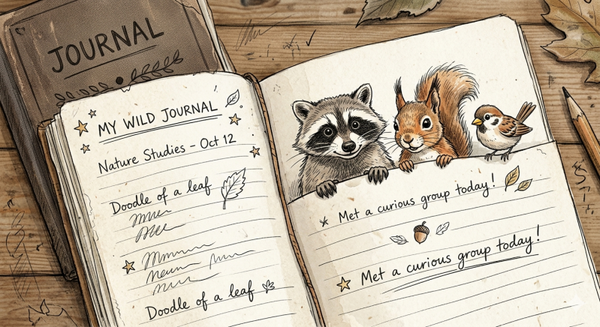 JOURNAL
MY WILD JOURNAL
Nature Studies - Oct 12
Doodle of a leaf
Doodle of a leaf
Met a curious group today!
Met a curious group today!